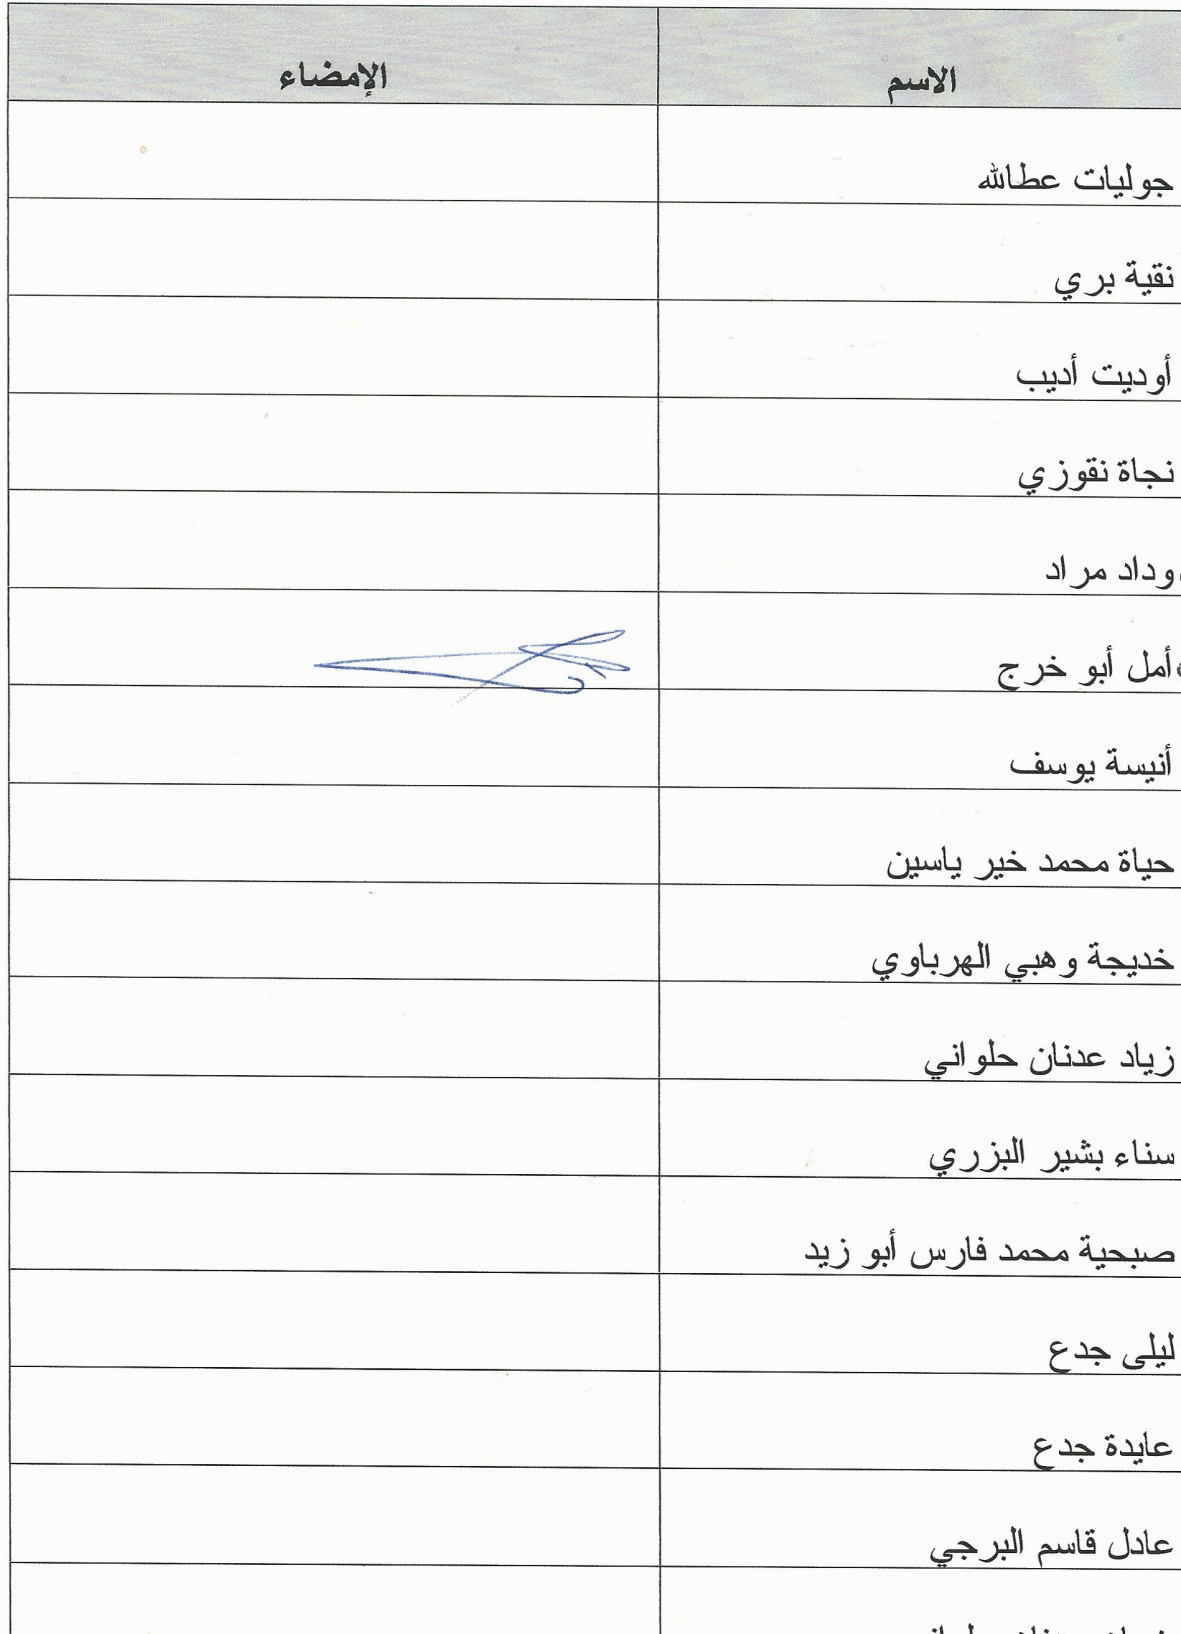 الاسم الإمضاء
جوليات عطالله
نقية بري
أوديت أديب
نجاة نقوزي
وداد مراد
أمل أبو خرج
أنيسة يوسف
حياة محمد خير ياسين
خديجة وهبي الهرباوي
زياد عدنان حلواني
سناء بشير البزري
صبحية محمد فارس أبو زيد
ليلى جدع
عايدة جدع
عادل قاسم البرجي